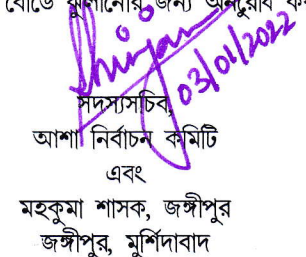 বোর্ডে ঝুলানোর জন্য অনুরোধ
03/01/2022
সদস্যসচিব,
আশা নির্বাচন কমিটি
এবং
মহকুমা শাসক, জঙ্গীপুর
জঙ্গীপুর, মুর্শিদাবাদ